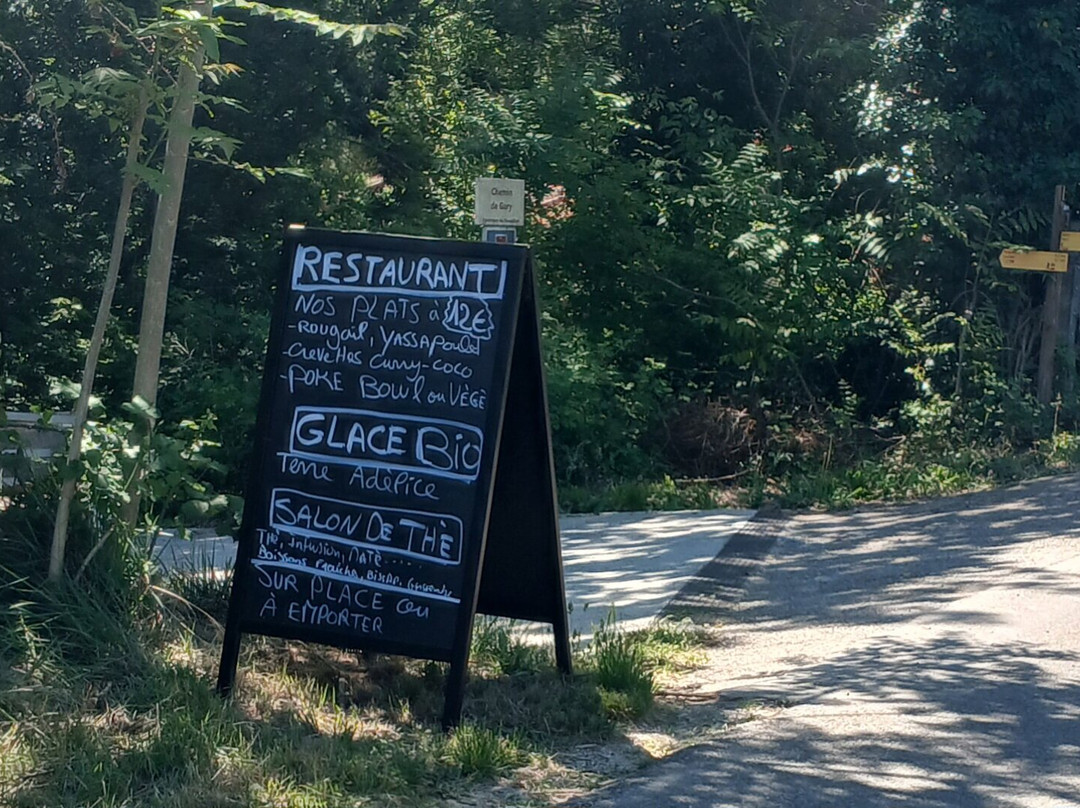 Chemin
de Gary
RESTAURANT
NOS PLATS à 12€
-Rougail, YASSA Poulet
-Crevettes Curry-coco
-POKE BOWL ou VÉGÉ
GLACE BiO
Terre Adèlice
SALON DE THÈ
THÉ, infusion, MATÈ.....
Boissons fraîche, BISSAP, Gingembre
SUR PLACE ou
À EMPORTER